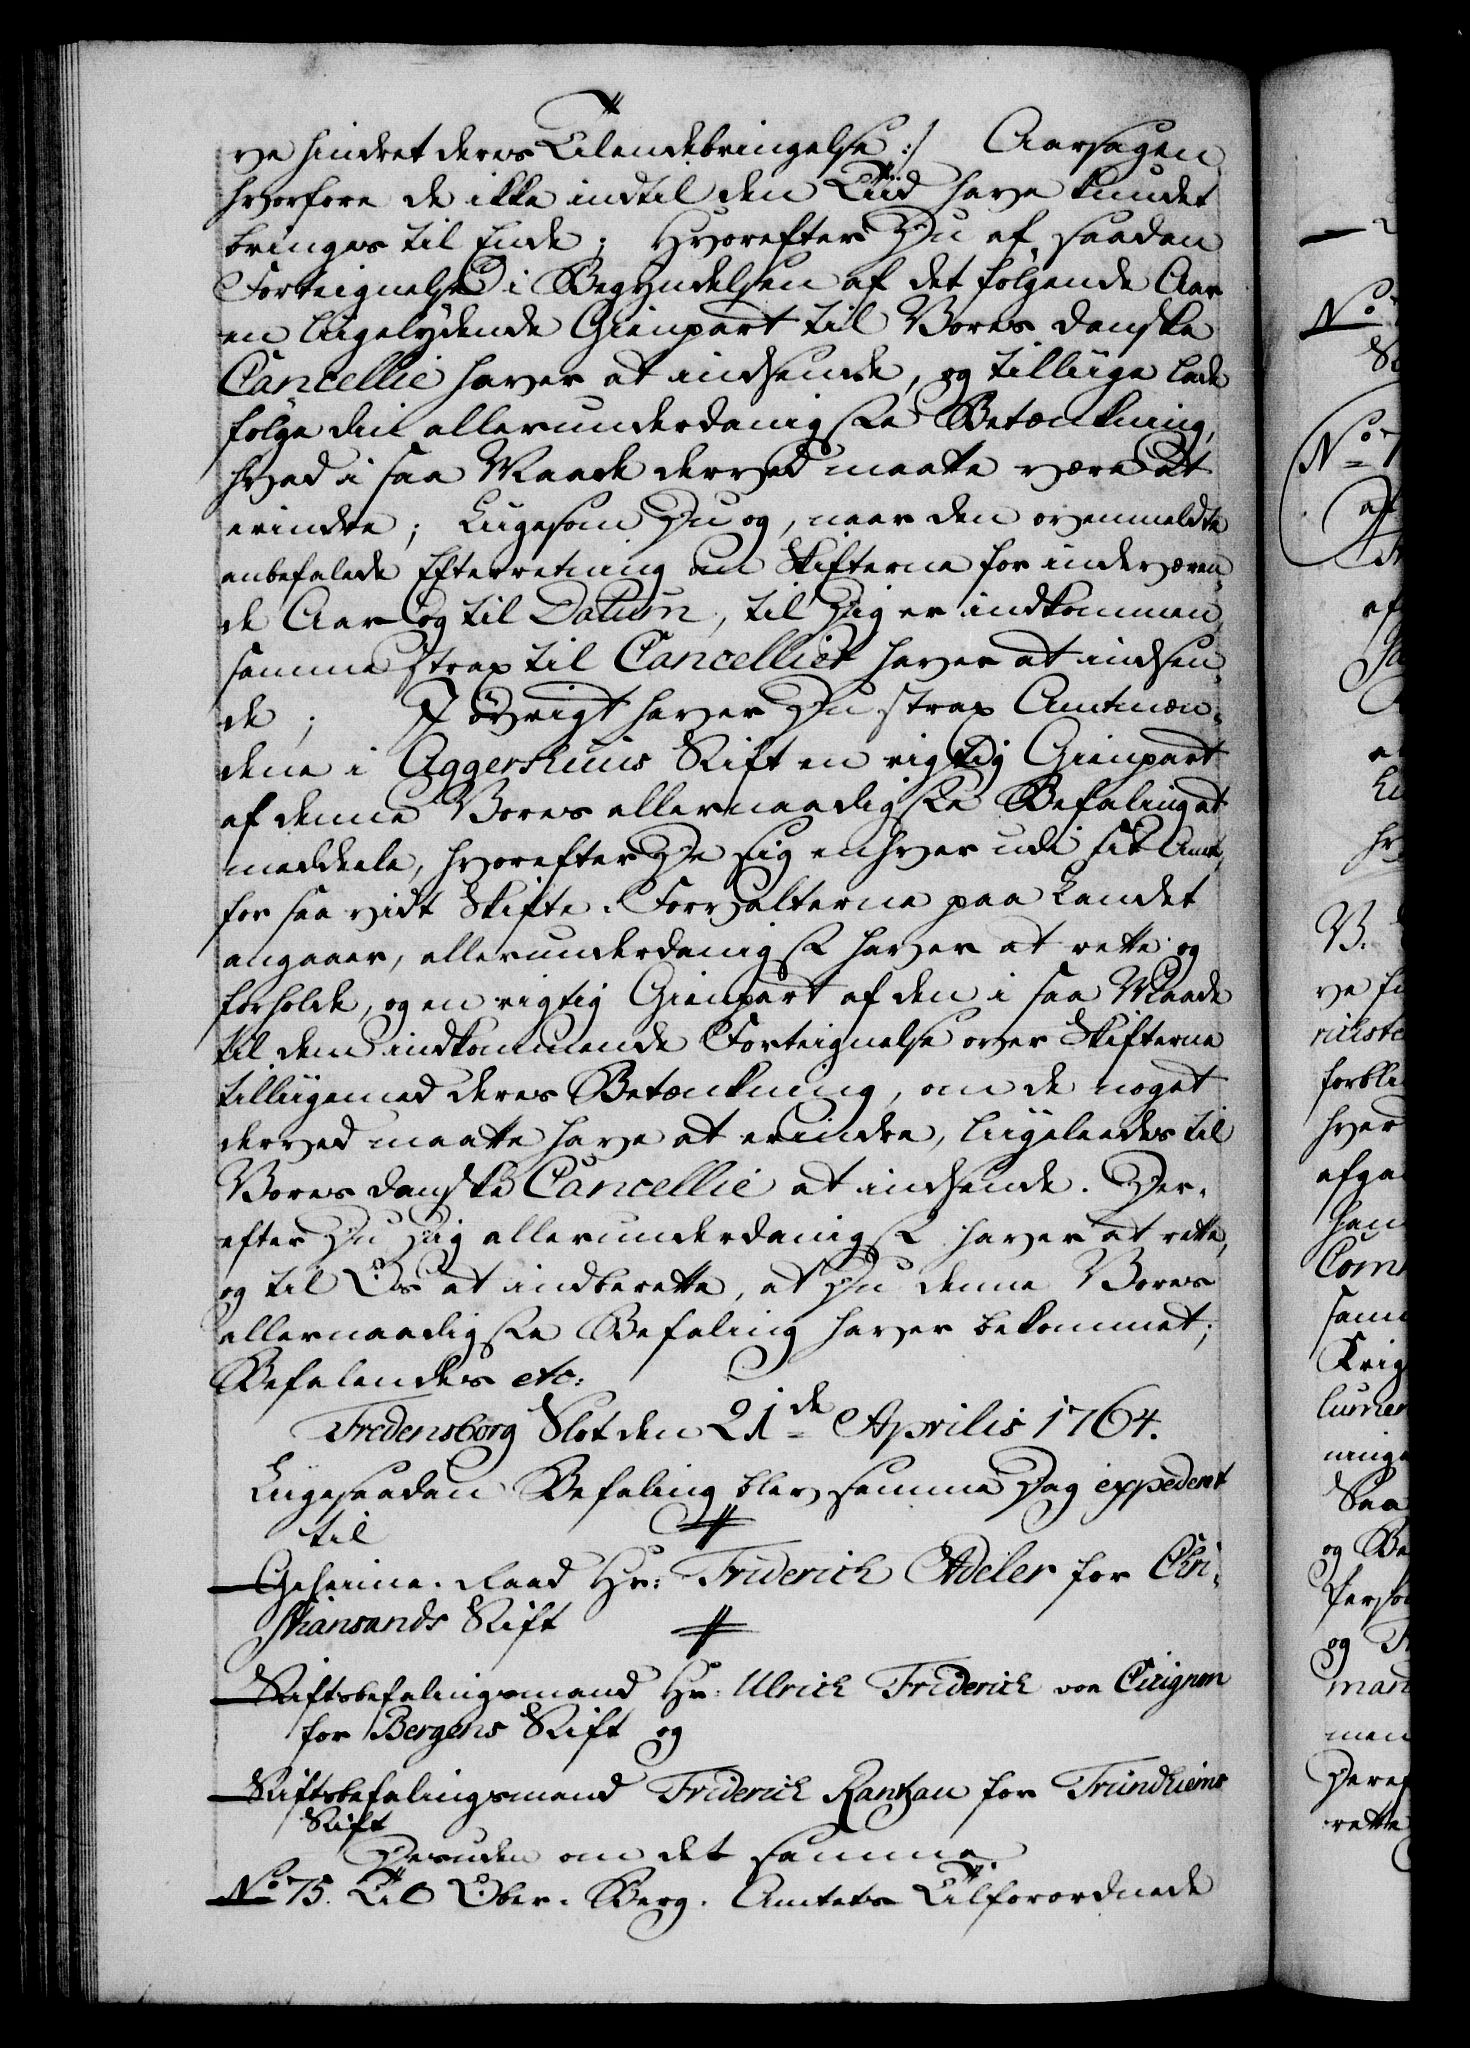 ve hindret deres Tilendebringelse :/ Aarsagen
hvorfore de ikke indtil den Tiid have kundet
bringes til Ende; Hvorefter Du af saadan
Forteignelse i Begyndelsen af det følgende Aar
en liigelydende Gienpart til Vores danske
Cancellie haver at indsende, og tilliige lade
følge din allerunderdanigste Betænkning,
hvad i saa Maade derved maatte være at
erindre; Liigesom Du og, naar den ovenmeldte
anbefalede Efterretning om Skifterne for indeværen,
de Aar og til Datum, til Dig er indkommen,
samme strax til Cancelliet haver at indsen,
de; I øvrigt haver Du strax Amtmæn,
dene i Aggershuus Stift en rigtig Gienpart
af denne Vores allernaadigste Befaling at
meddeele, hvorefter De sig enhver udi sit Amt,
for saa vidt Skifte-Forvalterne paa Landet
angaaer, allerunderdanigst haver at rette og
forholde, og en rigtig Gienpart af den i saa Maade
til dem indkommende Forteignelse over Skifterne
tilliigemed deres Betænkning, om de noget
derved maatte have at erindre, liigeleedes til
Vores danske Cancellie at indsende. Der-
efter Du Dig allerunderdanigst haver at rette,
og til Os at indberette, at Du denne Vores
allernaadigste Befaling haver bekommet;
Befalendes etc:
Fredensborg Slot den 21de Aprilis 1764.
Liigesaadan Befaling blev samme Dag expederet
til
Geheime-Raad Hr: Friderich Adeler for Chri-
stiansands Stift
Stiftsbefalingsmand Hr: Ulrich Friderich von Cicignon
for Bergens Stift og
Stiftsbefalingsmand Friderich Rantzau for Trundhiems
Stift
Desuden om det samme
No 75. Til Ober-Berg-Amtets Tilforordnede